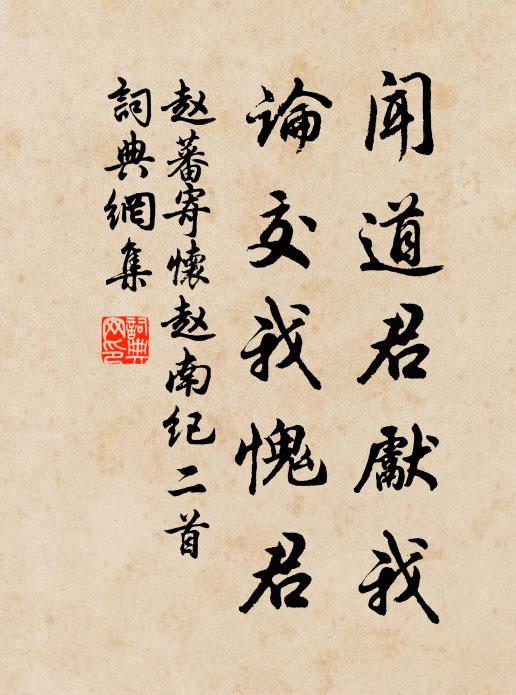 聞道君獻我
論交我愧君
赵蕃寄懷赵南纪二首
詞典網集
詞典网印